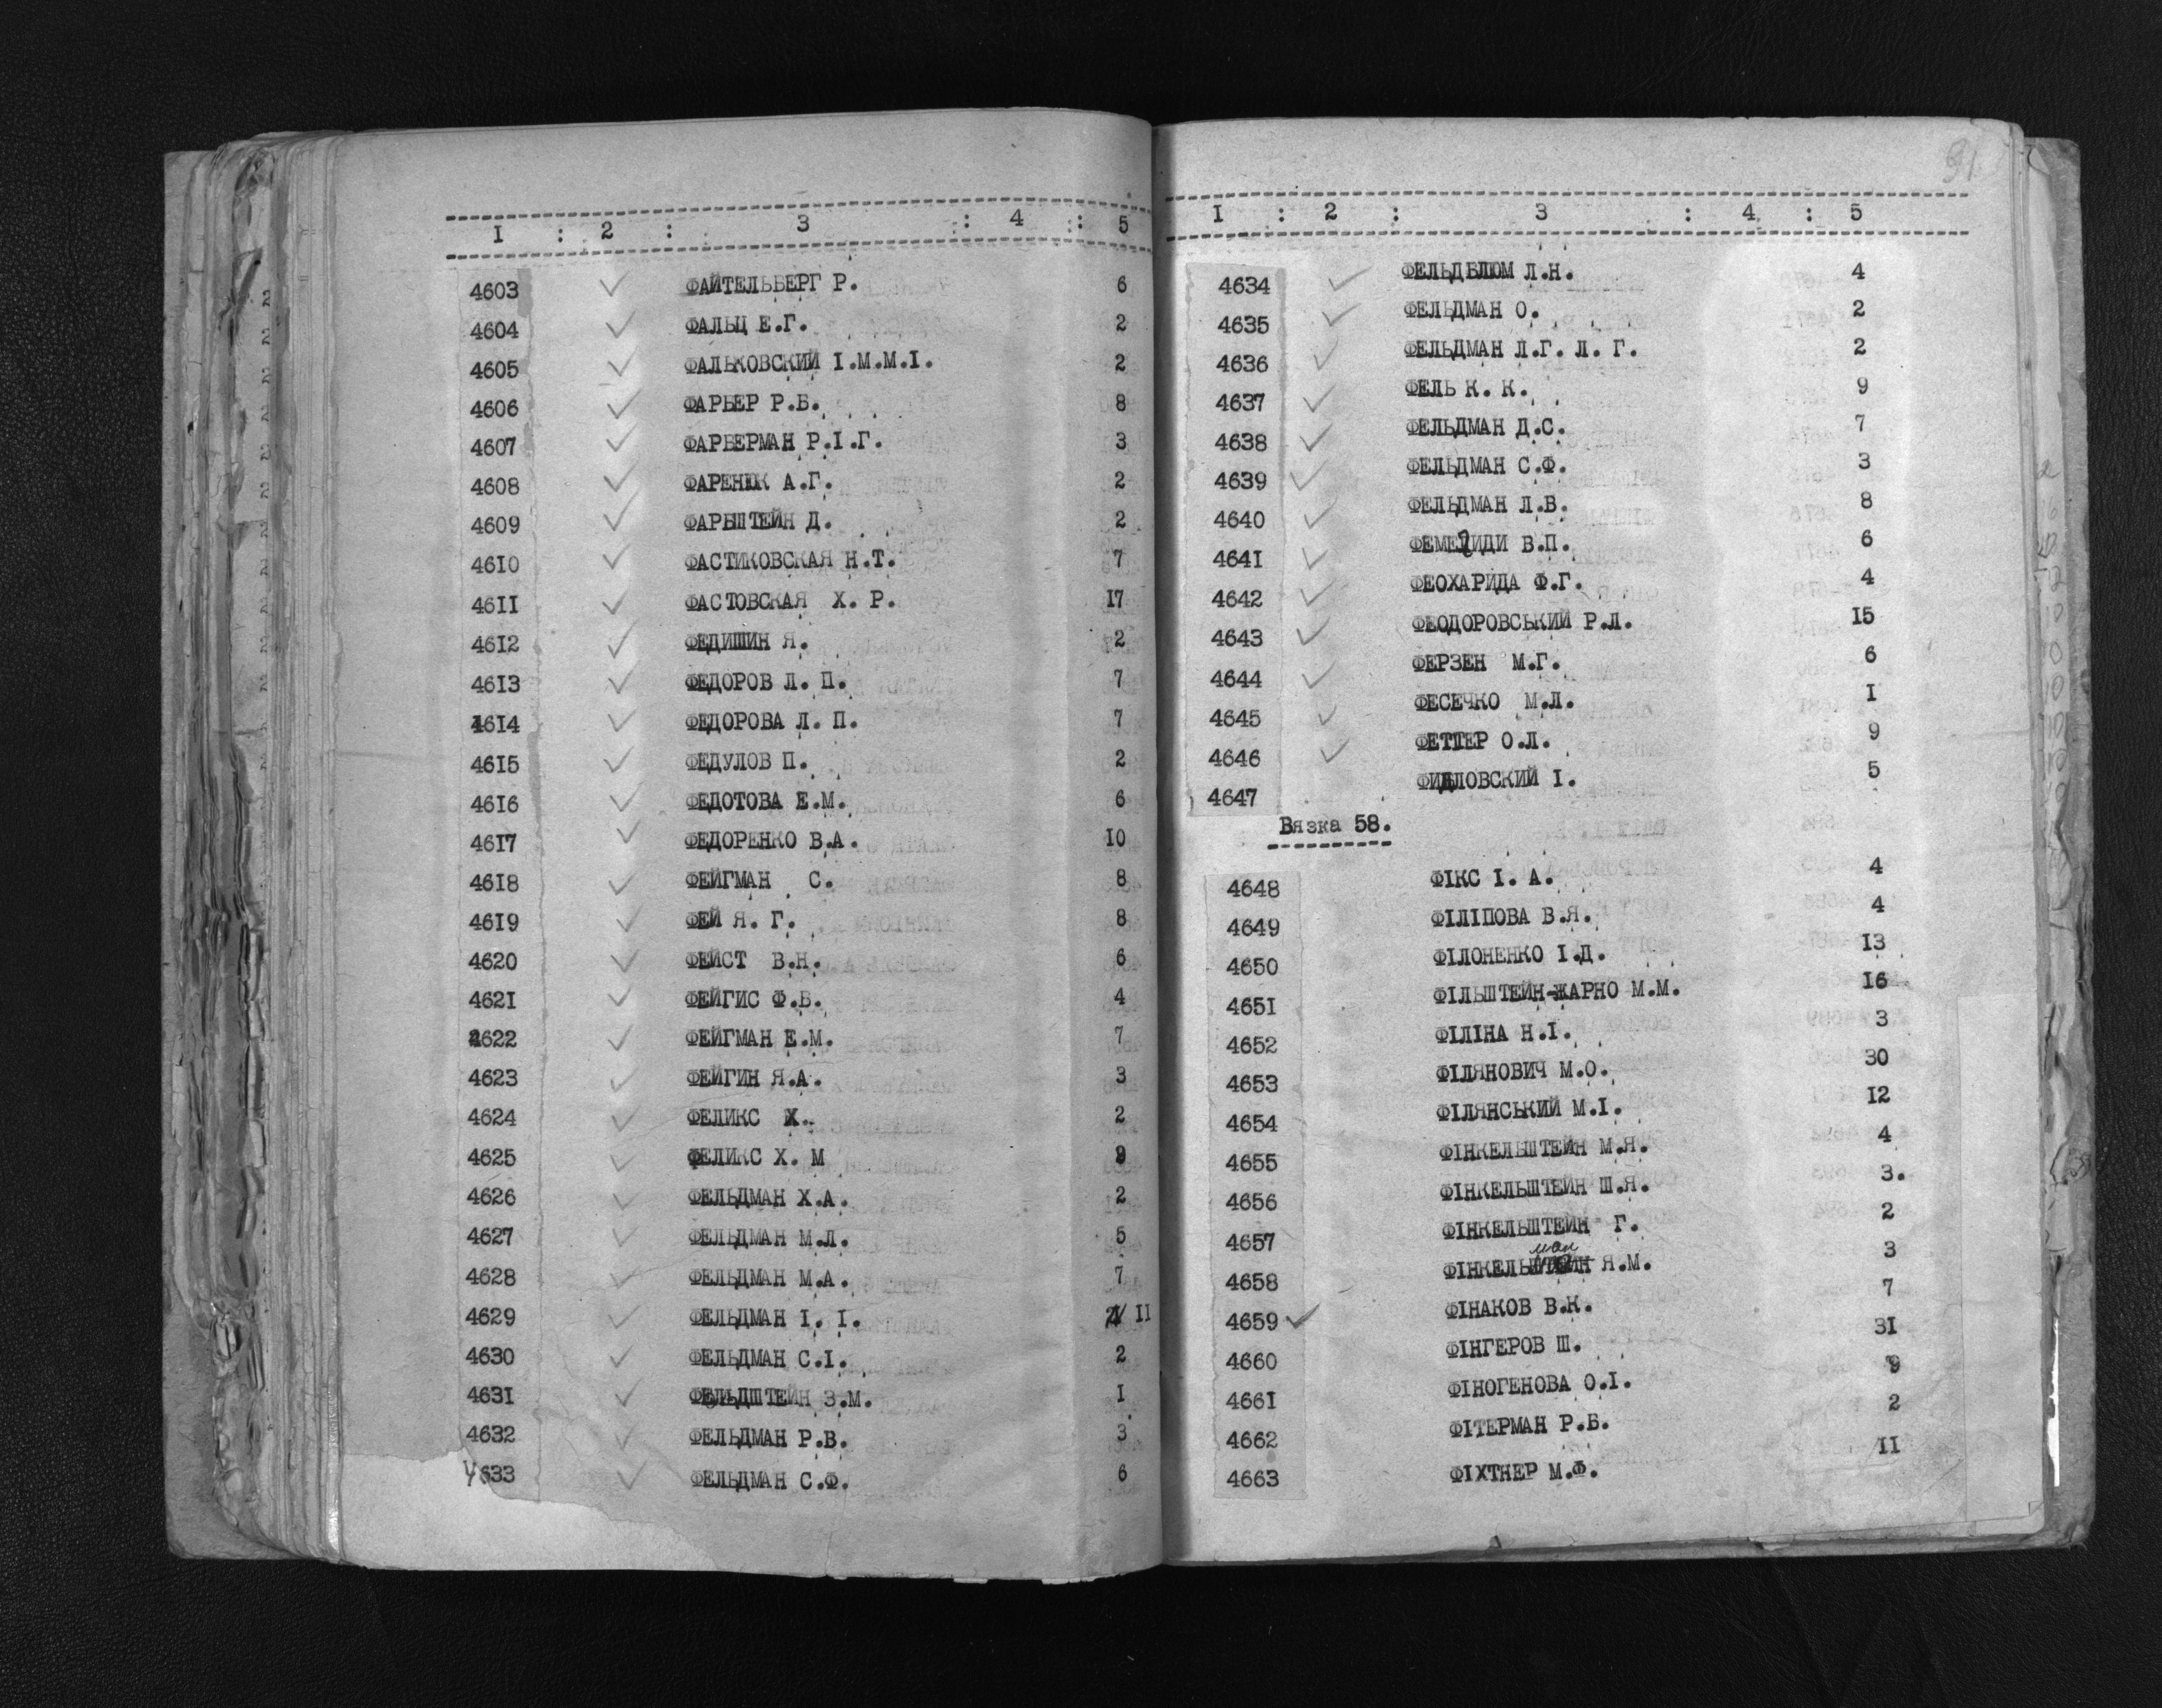 1 : 2 : 3 : 4 : 5
4603 ✓ ФАЙТЕЛЬБЕРГ Р. 6
4604 ✓ ФАЛЬЦ Е.Г. 2
4605 ✓ ФАЛЬКОВСКИЙ І.М.М.І. 2
4606 ✓ ФАРБЕР Р.Б. 8
4607 ✓ ФАРБЕРМАН Р.І.Г. 3
4608 ✓ ФАРЕНЮК А.Г. 2
4609 ✓ ФАРБШТЕЙН Д. 2
4610 ✓ ФАСТИКОВСКАЯ Н.Т. 7
4611 ✓ ФАСТОВСКАЯ Х. Р. 17
4612 ✓ ФЕДИШИН Я. 2
4613 ✓ ФЕДОРОВ Л. П. 7
4614 ✓ ФЕДОРОВА Л. П. 7
4615 ✓ ФЕДУЛОВ П. 2
4616 ✓ ФЕДОТОВА Е.М. 6
4617 ✓ ФЕДОРЕНКО В.А. 10
4618 ✓ ФЕЙГМАН С. 8
4619 ✓ ФЕЙ Я. Г. 8
4620 ✓ ФЕЙСТ В.Н. 6
4621 ✓ ФЕЙГИС Ф.В. 4
4622 ✓ ФЕЙГМАН Е.М. 7
4623 ✓ ФЕЙГИН Я.А. 3
4624 ✓ ФЕЛИКС Х. 2
4625 ✓ ФЕЛИКС Х. М 9
4626 ✓ ФЕЛЬДМАН Х.А. 2
4627 ✓ ФЕЛЬДМАН М.Л. 5
4628 ✓ ФЕЛЬДМАН М.А. 7
4629 ✓ ФЕЛЬДМАН І. І. 11
4630 ✓ ФЕЛЬДМАН С.І. 2
4631 ✓ ФЕЛЬДШТЕЙН З.М. 1
4632 ✓ ФЕЛЬДМАН Р.В. 3
4633 ✓ ФЕЛЬДМАН С.Ф. 6
91
1 : 2 : 3 : 4 : 5
4634 ✓ ФЕЛЬДБЛЮМ Л.Н. 4
4635 ✓ ФЕЛЬДМАН О. 2
4636 ✓ ФЕЛЬДМАН Л.Г. Л. Г. 2
4637 ✓ ФЕЛЬ К. К. 9
4638 ✓ ФЕЛЬДМАН Д.С. 7
4639 ✓ ФЕЛЬДМАН С.Ф. 3
4640 ✓ ФЕЛЬДМАН Л.В. 8
4641 ✓ ФЕМЕЛИДИ В.П. 6
4642 ✓ ФЕОХАРИДА Ф.Г. 4
4643 ✓ ФЕОДОРОВСЬКИЙ Р.Л. 15
4644 ✓ ФЕРЗЕН М.Г. 6
4645 ✓ ФЕСЕЧКО М.Л. 1
4646 ✓ ФЕТТЕР О.Л. 9
4647 ФИДЛОВСКИЙ І. 5
Вязка 58.
4648 ФІКС І. А. 4
4649 ФІЛІПОВА В.Я. 4
4650 ФІЛОНЕНКО І.Д. 13
4651 ФІЛЬШТЕЙН-ЖАРНО М.М. 16
4652 ФІЛІНА Н.І. 3
4653 ФІЛЯНОВИЧ М.О. 30
4654 ФІЛЯНСЬКИЙ М.І. 12
4655 ФІНКЕЛЬШТЕЙН М.Я. 4
4656 ФІНКЕЛЬШТЕЙН Ш.Я. 3.
4657 ФІНКЕЛЬШТЕЙН Г. 2
ман
4658 ФІНКЕЛЬШТЕЙН Я.М. 3
4659 ✓ ФІНАКОВ В.К. 7
4660 ФІНГЕРОВ Ш. 31
4661 ФІНОГЕНОВА О.І. 9
4662 ФІТЕРМАН Р.Б. 2
4663 ФІХТНЕР М.Ф. 11